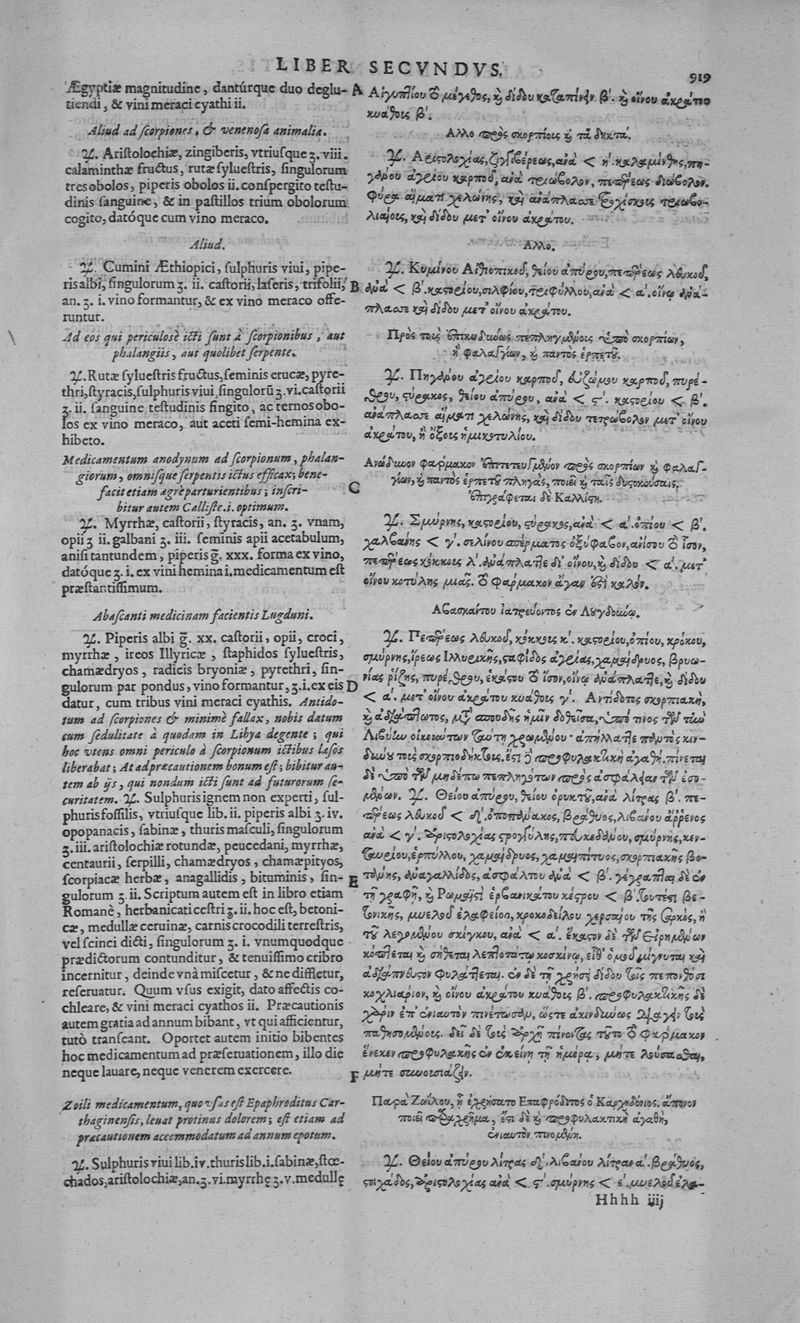 LIBER SECVNDVS.
919
Ægyptiæ magnitudine, dantúrque duo deglu-
tiendi, & vini meraci cyathi ii.
Aliud ad scorpiones, & venenosa animalia.
♃. Aristolochiæ, zingiberis, vtriusque ʒ. viii.
calaminthæ fructus, rutæ syluestris, singulorum
tres obolos, piperis obolos ii. conspergito testu-
dinis sanguine, & in pastillos trium obolorum
cogito, datóque cum vino meraco.
Aliud.
♃. Cumini Æthiopici, sulphuris viui, pipe-
ris albi, singulorum ʒ. ii. castorii, laseris, trifolii,
an. ʒ. i. vino formantur, & ex vino meraco offe-
runtur.
Ad eos qui periculosè icti sunt à scorpionibus, aut
phalangiis, aut quolibet serpente.
♃. Rutæ syluestris fructus, seminis erucæ, pyre-
thri, styracis, sulphuris viui, singulorũ ʒ. vi. castorii
ʒ. ii. sanguine testudinis fingito, ac ternos obo-
los ex vino meraco, aut aceti semi-hemina ex-
hibeto.
Medicamentum anodynum ad scorpionum, phalan-
giorum, omnisque serpentis ictus efficax; bene-
facit etiam ægrè parturientibus; inscri-
bitur autem Calliste .i. optimum.
♃. Myrrhæ, castorii, styracis, an. ʒ. vnam,
opii ʒ ii. galbani ʒ. iii. seminis apii acetabulum,
anisi tantundem, piperis g̃. xxx. forma ex vino,
datóque ʒ. i. ex vini hemina i. medicamentum est
præstantissimum.
Abascanti medicinam facientis Lugduni.
♃. Piperis albi g̃. xx. castorii, opii, croci,
myrrhæ, ireos Illyricæ, staphidos syluestris,
chamædryos, radicis bryoniæ, pyrethri, sin-
gulorum par pondus, vino formantur, ʒ. i. ex eis
datur, cum tribus vini meraci cyathis. Antido-
tum ad scorpiones & minimè fallax, nobis datum
cum sedulitate à quodam in Libya degente; qui
hoc vtens omni periculo à scorpionum ictibus læsos
liberabat; At ad præcautionem bonum est; bibitur au-
tem ab ijs, qui nondum icti sunt ad futurorum se-
curitatem. ♃. Sulphuris ignem non experti, sul-
phuris fossilis, vtriusque lib. ii. piperis albi ʒ. iv.
opopanacis, sabinæ, thuris masculi, singulorum
ʒ. iii. aristolochiæ rotundæ, peucedani, myrrhæ,
centaurii, serpilli, chamædryos, chamæpityos,
scorpiacæ herbæ, anagallidis, bituminis, sin-
gulorum ʒ. ii. Scriptum autem est in libro etiam
Romanè, herbanicati cestri ʒ. ii, hoc est, betoni-
cæ, medullæ ceruinæ, carnis crocodili terrestris,
vel scinci dicti, singulorum ʒ. i. vnumquodque
prædictorum contunditur, & tenuissimo cribro
incernitur, deinde vnà miscetur, & ne diffletur,
reseruatur. Quum vsus exigit, dato affectis co-
chleare, & vini meraci cyathos ii. Præcautionis
autem gratia ad annum bibant, vt qui afficientur,
tutò transeant. Oportet autem initio bibentes
hoc medicamentum ad præseruationem, illo die
neque lauare, neque venerem exercere.
Zoili medicamentum, quo vsus est Epaphroditus Car-
thaginensis, leuat protinus dolorem; est etiam ad
præcautionem accommodatum ad annum epotum.
♃. Sulphuris viui lib. iv. thuris lib. i. sabinæ, stœ-
chados, aristolochiæ, an. ʒ. vi. myrrhę ʒ. v. medullę
A
B
C
D
E
F
Αἰγυπτίου τὸ μέγεθος, καὶ δίδου καταπίνειν β΄. καὶ οἴνου ἀκράτου
κυάθοις β΄.
Αλλο πρὸς σκορπίοις καὶ τὰ δηκτά.
♃. Αριστολοχίας, ζιγγιβέρεως, ἀνὰ < η΄. καλαμίνθης, πη-
γάνου ἀγρίου καρποῦ, ἀνὰ τριώβολον, πεπέρεως διώβολον.
φύρα αἵματι χελώνης, καὶ ἀνάπλασσε τροχίσκοις τριωβο-
λιαίους, καὶ δίδου μετ' οἴνου ἀκράτου.
Αλλο.
♃. Κυμίνου Αἰθιοπικοῦ, θείου ἀπύρου, πεπέρεως λευκοῦ,
ἀνὰ < β΄. καστορίου, σιλφίου, τριφύλλου, ἀνὰ < α΄. οἴνῳ ἀνά-
πλασσε καὶ δίδου μετ' οἴνου ἀκράτου.
Πρὸς τοὺς ἐπικινδύνως πεπληγμένοις ὑπὸ σκορπίων,
ἢ φαλαγγίων, καὶ παντὸς ἑρπετοῦ.
♃. Πηγάνου ἀγρίου καρποῦ, εὐζώμου καρποῦ, πυρέ-
θρου, στύρακος, θείου ἀπύρου, ἀνὰ < ϛ΄. καστορίου < β΄.
ἀνάπλασσε αἵματι χελώνης, καὶ δίδου τετρώβολον μετ' οἴνου
ἀκράτου, ἢ ὄξους ἡμικοτυλίου.
Ανώδυνον φάρμακον ἐπιτετευγμένον πρὸς σκορπίων καὶ φαλαγ-
γίων, καὶ παντὸς ἑρπετοῦ πληγὰς, ποιεῖ καὶ ταῖς δυστοκούσαις.
ἐπιγράφεται δὲ Καλλίστη.
♃. Σμύρνης, καστορίου, στύρακος, ἀνὰ < α΄. ὀπίου < β΄.
χαλβάνης < γ΄. σελίνου σπέρματος ὀξύβαφον, ἀνίσου τὸ ἴσον,
πεπέρεως κόκκοις λ΄. ἀνάπλαττε δι' οἴνου, καὶ δίδου < α΄. μετ'
οἴνου κοτύλης μιᾶς. τὸ φάρμακον ἄγαν ἐστὶ καλόν.
Αβασκάντου ἰατρεύοντος ἐν Λουγδούνῳ.
♃. Πεπέρεως λευκοῦ, κόκκοις κ΄. καστορίου, ὀπίου, κρόκου,
σμύρνης, ἴρεως Ἰλλυρικῆς, σταφίδος ἀγρίας, χαμαίδρυος, βρυω-
νίας ῥίζης, πυρέθρου, ἑκάστου τὸ ἴσον, οἴνῳ ἀνάπλαττε, καὶ δίδου
< α΄. μετ' οἴνου ἀκράτου κυάθοις γ΄. Αντίδοτος σκορπιακὴ,
καὶ ἀδιάπτωτος, μετὰ σπουδῆς ἡμῖν δοθεῖσα, ὑπό τινος τῶν τὴν
Λιβύην οἰκούντων ταύτῃ χρωμένου· ἀπήλλαττε παντὸς κιν-
δύνου τοὺς σκορπιοδήκτους. ἔστι δὲ προφυλακτικὴ ἀγαθή. πίνεται
δὲ ὑπὸ τῶν μηδέπω πεπληγότων πρὸς ἀσφάλειαν τῶν ἐσο-
μένων. ♃. Θείου ἀπύρου, θείου ὀρυκτοῦ, ἀνὰ λίτρας β΄. πε-
πέρεως λευκοῦ < δ΄. ὀποπάνακος, βράθυος, λιβάνου ἄρρενος
ἀνὰ < γ΄. ἀριστολοχίας στρογγύλης, πευκεδάνου, σμύρνης, κεν-
ταυρίου, ἑρπύλλου, χαμαίδρυος, χαμαιπίτυος, σκορπιακῆς βο-
τάνης, ἀναγαλλίδος, ἀσφάλτου ἀνὰ < β΄. γέγραπται δὲ ἐν
τῇ γραφῇ, καὶ Ρωμαϊστὶ ἑρβανικάτου κέστρου < β΄. τουτέστι βε-
τονικῆς, μυελοῦ ἐλαφείου, κροκοδείλου χερσαίου τῆς σαρκὸς, ἢ
τοῦ λεγομένου σκίγκου, ἀνὰ < α΄. ἕκαστον δὲ τῶν εἰρημένων
κόπτεται καὶ σήθεται λεπτοτάτῳ κοσκίνῳ, εἶθ' ὁμοῦ μίγνυται καὶ
ἀδιάπνευστον φυλάττεται. ἐν δὲ τῇ χρήσῃ δίδου τοῖς πεπονθόσι
κοχλιάριον, καὶ οἴνου ἀκράτου κυάθοις β΄. προφυλακτικῆς δὲ
χάριν ἐπ' ἐνιαυτὸν πινέτωσαν, ὥστε ἀκινδύνως διάγειν τοὺς
παθησομένους. δεῖ δὲ τοῖς ἀρχῇ πίνοντας τοῦτο τὸ φάρμακον
ἕνεκεν προφυλακῆς ἐν ἐκείνῃ τῇ ἡμέρα, μήτε λούσασθαι,
μήτε συνουσιάζειν.
Παρὰ Ζωΐλου, ᾗ ἐχρήσατο Επαφρόδιτος ὁ Καρχηδόνιος. ἄπονον
ποιεῖ παραχρῆμα, ἔστι δὲ καὶ προφυλακτικὴ ἀγαθὴ,
ἐνιαυτὸν πινομένη.
♃. Θείου ἀπύρου λίτρας δ΄. λιβάνου λίτραν α΄. βράθυος,
στοιχάδος, ἀριστολοχίας ἀνὰ < ϛ΄. σμύρνης < ε΄. μυελοῦ ἐλα-
Hhhh iiij